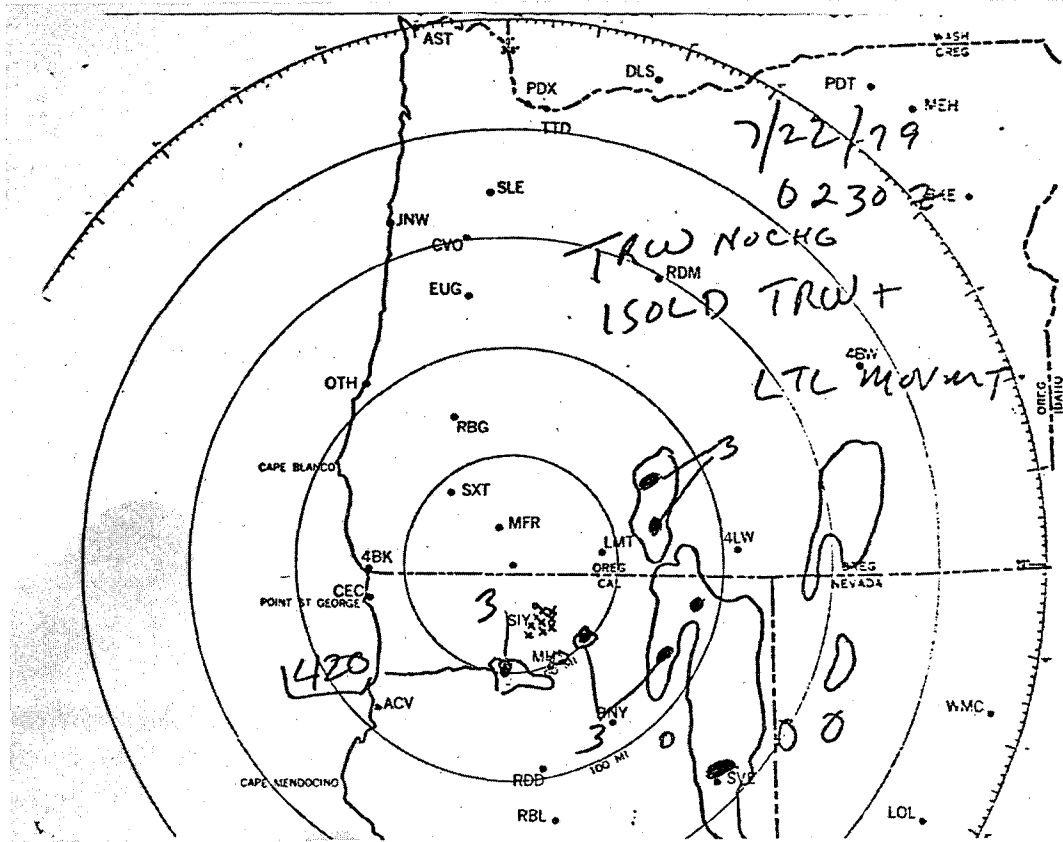 AST
WASH
OREG
PDX
DLS
PDT
MEH
TTD
7/22/79
SLE
0230Z
JNW
CVO
TRW NOCHG
RDM
EUG
ISOLD TRW+
4BW
OTH
LTL MOVMT
OREG
IDAHO
RBG
3
CAPE BLANCO
SXT
MFR
LMT
4LW
4BK
OREG
CAL
OREG
NEVADA
CEC
POINT ST GEORGE
3
SIY
420
ACV
WMC
3
100 MI
CAPE MENDOCINO
RDD
SVE
RBL
LOL